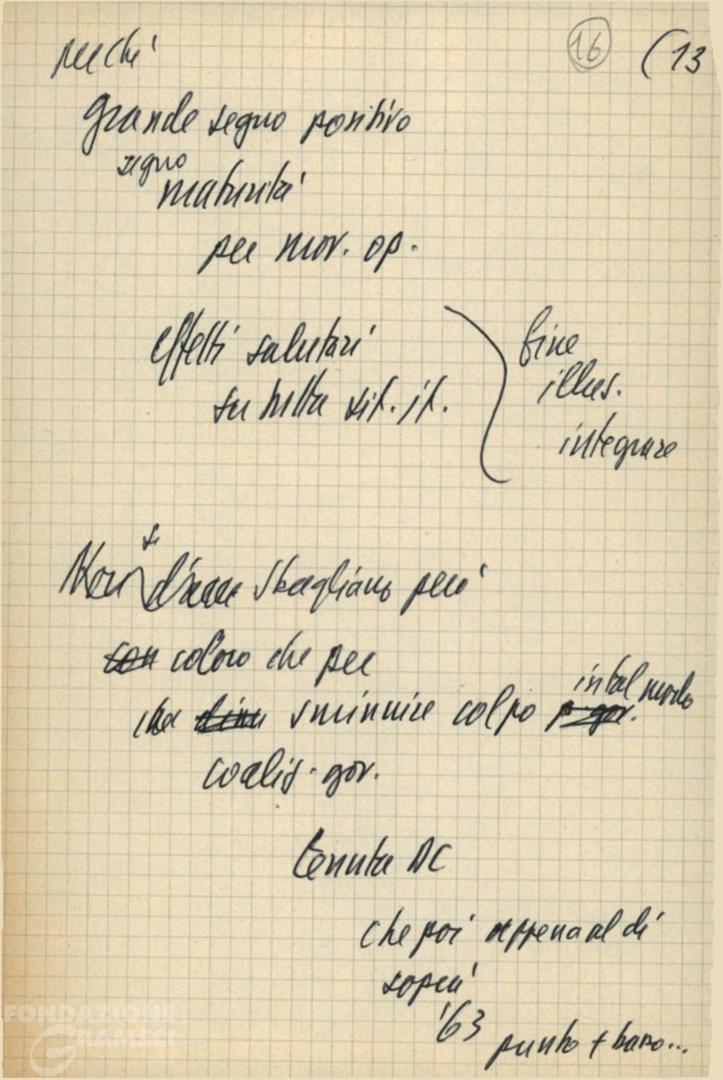 16 (13
perché
grande segno positivo
segno
maturità
per mov. op.
effetti salutari
su tutta sit. it.
fine
illus.
integrare
si
Non sbagliano però
con coloro che per
sminuire colpo
in tal modo
coaliz. gov.
tenuta DC
che poi appena al di
sopra
'63
punto + basso...
FONDAZIONE
GRAMSCI